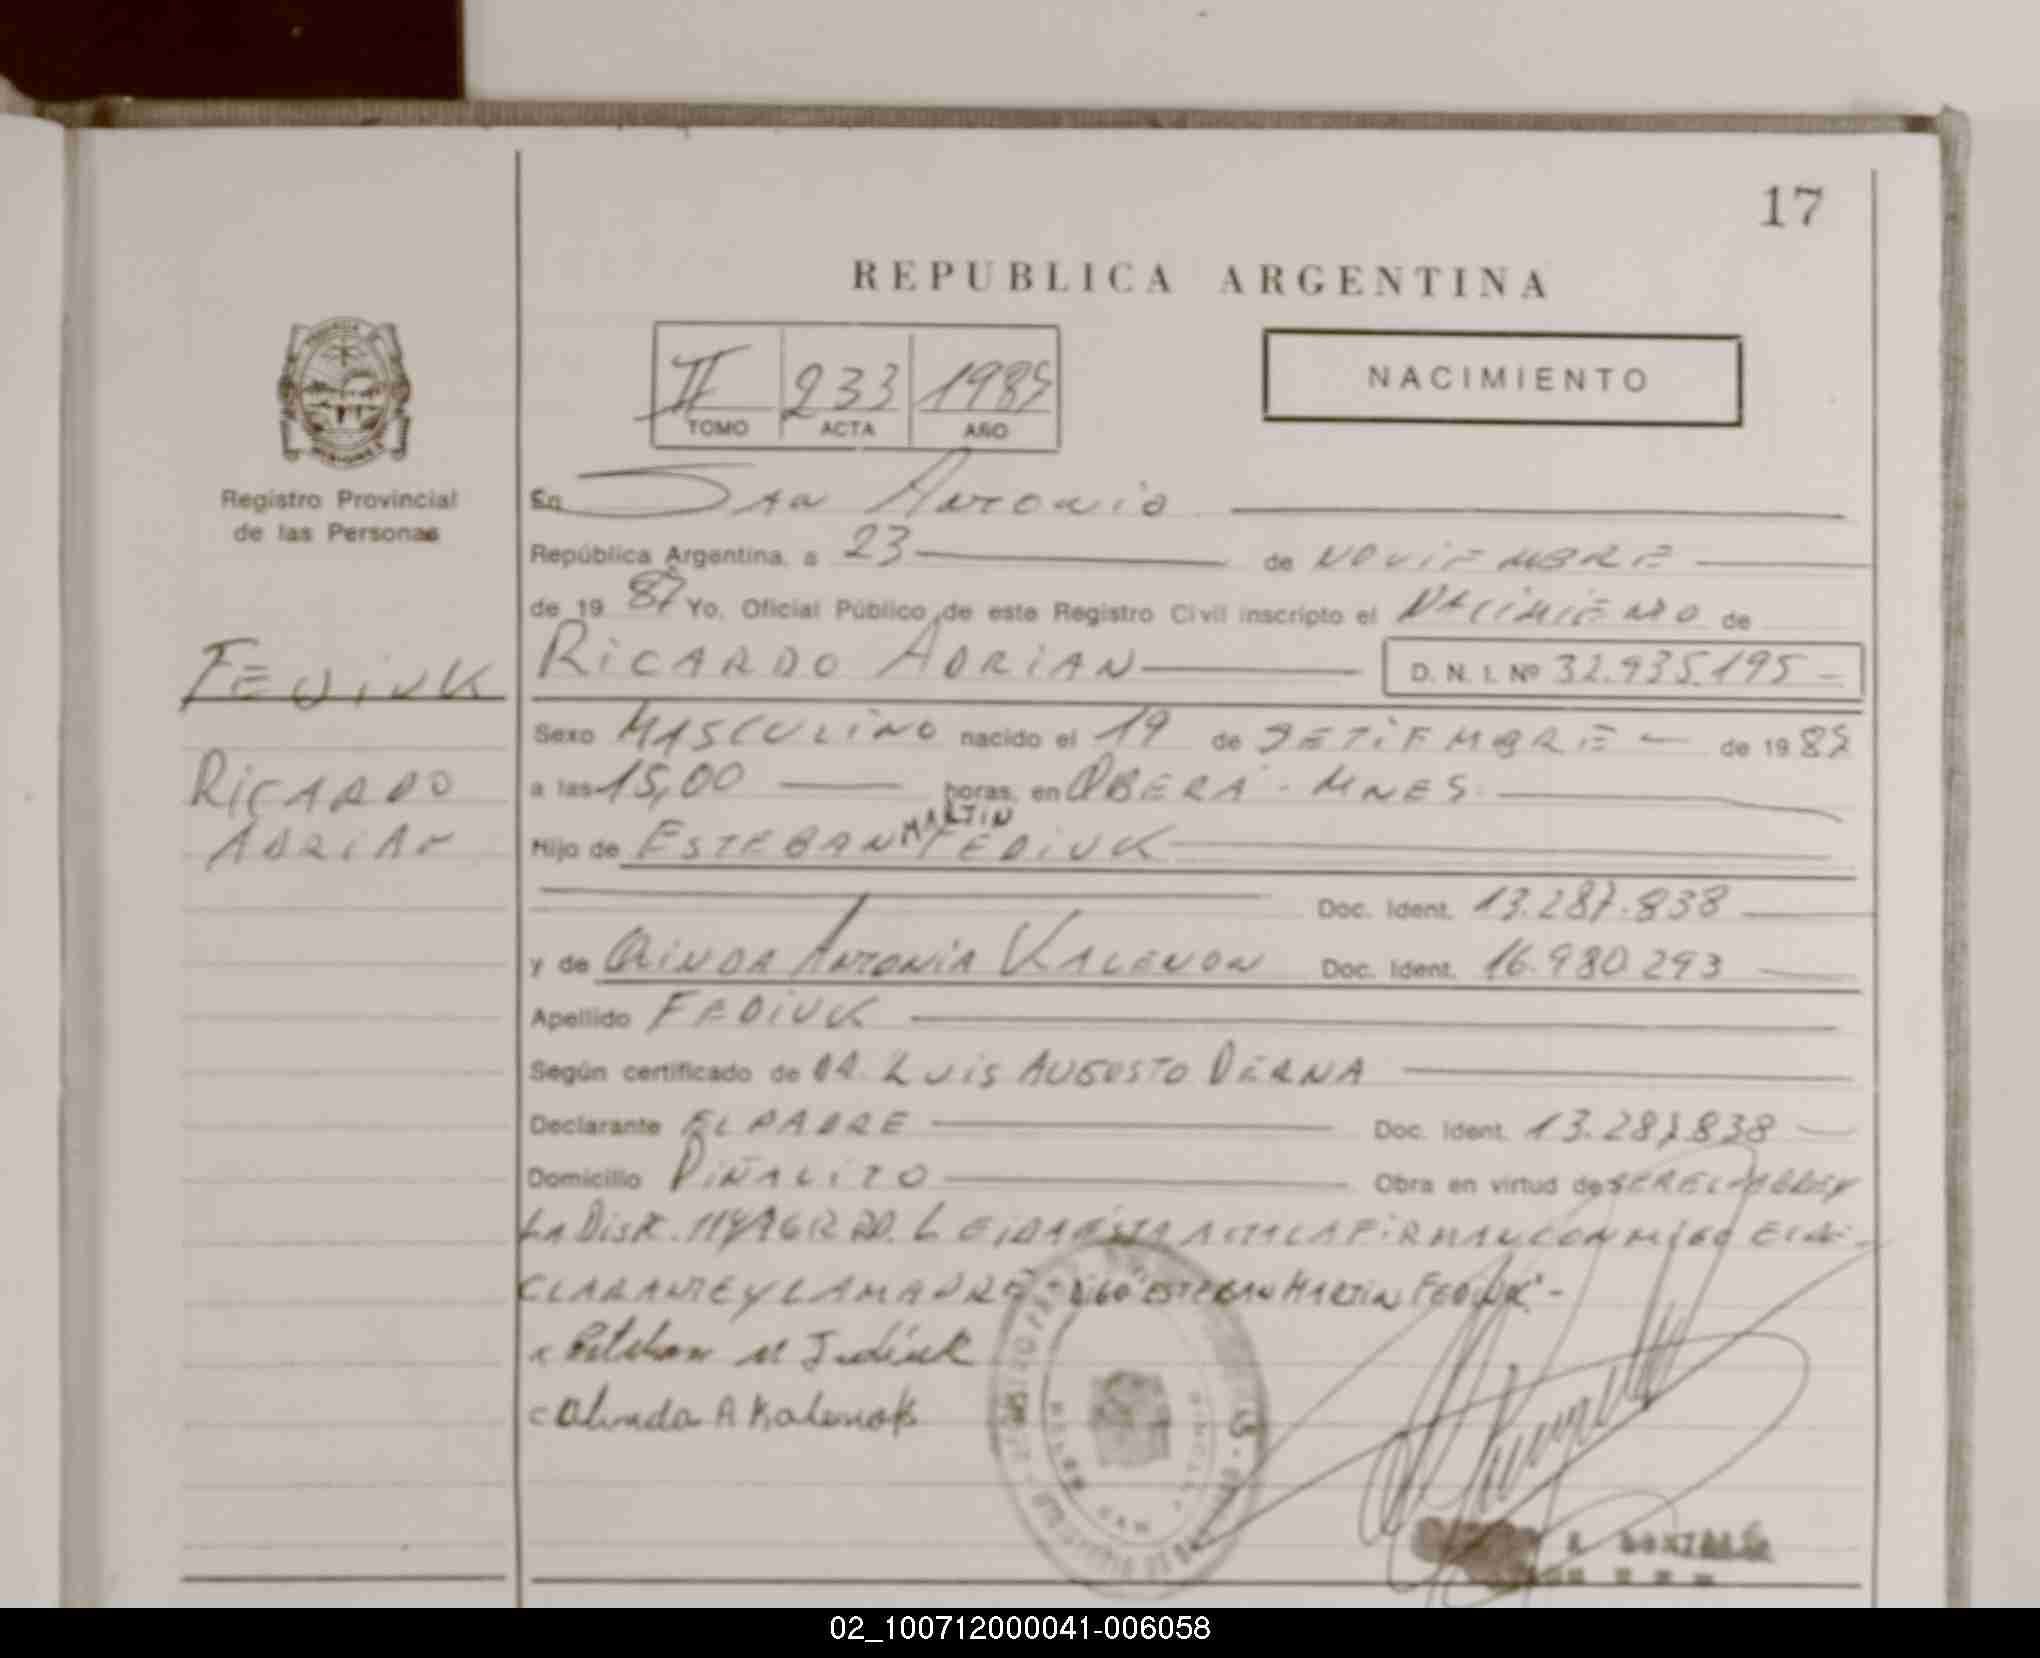 17
REPUBLICA ARGENTINA
II 233 1987
TOMO ACTA AÑO
NACIMIENTO
Registro Provincial
de las Personas
En San Antonio
República Argentina, a 23 de NOVIEMBRE
de 19 87 Yo, Oficial Público de este Registro Civil inscripto el NACIMIENTO de
FEDIUK
RICARDO ADRIAN D. N. I. Nº 32.935.195
Sexo MASCULINO nacido el 19 de SETIEMBRE de 19 87
RICARDO
ADRIAN
a las 15,00 horas, en OBERA - MNES.
MARTIN
Hijo de ESTEBAN FEDIUK
Doc. Ident. 13.287.838
y de ANTONIA Doc. Ident. 16.980.293
Apellido FEDIUK
Según certificado de DR. LUIS AUGUSTO DERNA
Declarante EL PADRE Doc. Ident. 13.287.838
Domicilio PIÑALITO Obra en virtud de SER EL PADRE Y
LA DISP. LEIDA ESTA ACTA LA FIRMAN CONMIGO EL DE-
CLARANTE Y LA MADRE - DIGO "ESTEBAN MARTIN FEDIUK" -
Esteban M Fediuk
A Kalenok
GONZALEZ
02_100712000041-006058